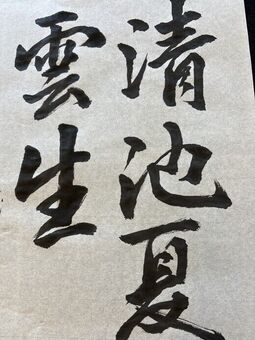 清池夏
雲生